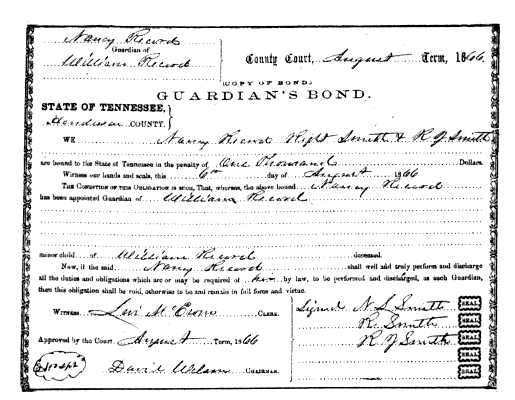 Nancy Record
Guardian of
William Record
County Court, August Term, 1866.
(COPY OF BOND)
GUARDIAN'S BOND.
STATE OF TENNESSEE,
Henderson COUNTY.
WE Nancy Record Right Smith & R Y Smith
are bound to the State of Tennessee in the penalty of One Thousand Dollars.
Witness our hands and seals, this 6th day of August 1866
THE CONDITION OF THIS OBLIGATION IS SUCH, That, whereas, the above bound Nancy Record
has been appointed Guardian of William Record
minor child of William Record deceased.
Now, if the said Nancy Record shall well and truly perform and discharge
all the duties and obligations which are or may be required of her by law, to be performed and discharged, as such Guardian,
then this obligation shall be void, otherwise to be and remain in full force and virtue.
Witness. Levi McEwen CLERK.
Signed N. S. Smith SEAL
R. Smith SEAL
R Y Smith SEAL
SEAL
SEAL
Approved by the Court. August Term, 1866
David Wilson CHAIRMAN.